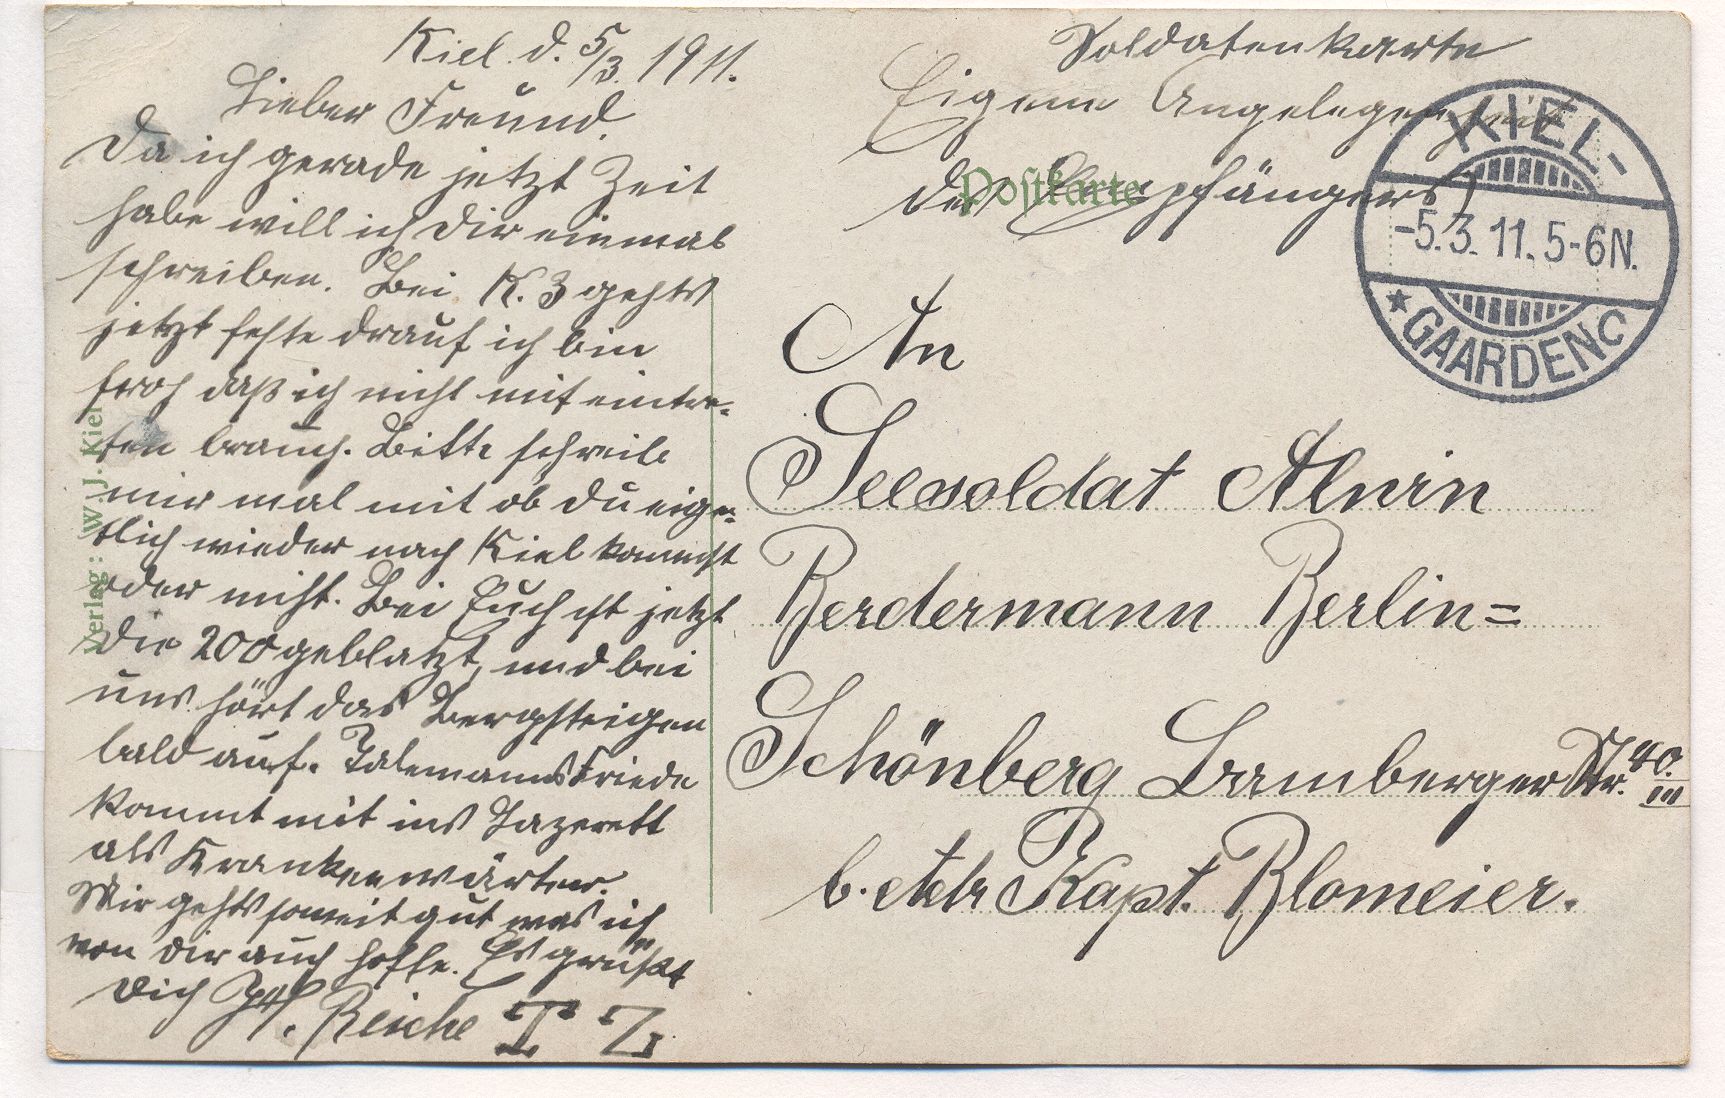 Kiel d. 5/3. 1911.
Lieber Freund.
Da ich gerade jetzt Zeit
habe will ich Dir einmal
schreiben. Bei K. 3 gehts
jetzt feste drauf ich bin
froh daß ich nicht mit eintre-
ten brauch. Bitte schreibe
mir mal mit ob du eigen-
tlich wieder nach Kiel kommst
oder nicht. Bei Euch ist jetzt
die 200 geblatzt, und bei
uns hört das Bergsteigen
bald auf. Friede
kommt mit ins Lazerett
als Krankenwärter.
Mir gehts soweit gut was ich
von dir auch hoffe. Es grüßt
Dich Reiche I Z.
Verlag: W. J. Kiel
Soldatenkarte
Eigene Angelegenheit
des Empfängers
Postkarte
KIEL-
-5.3.11.5-6N.
★ GAARDEN C
An
Seesoldat Alwin
Berdermann Berlin=
Schönberg Bamberger Str. 40. III
b. Kapt. Blomeier.